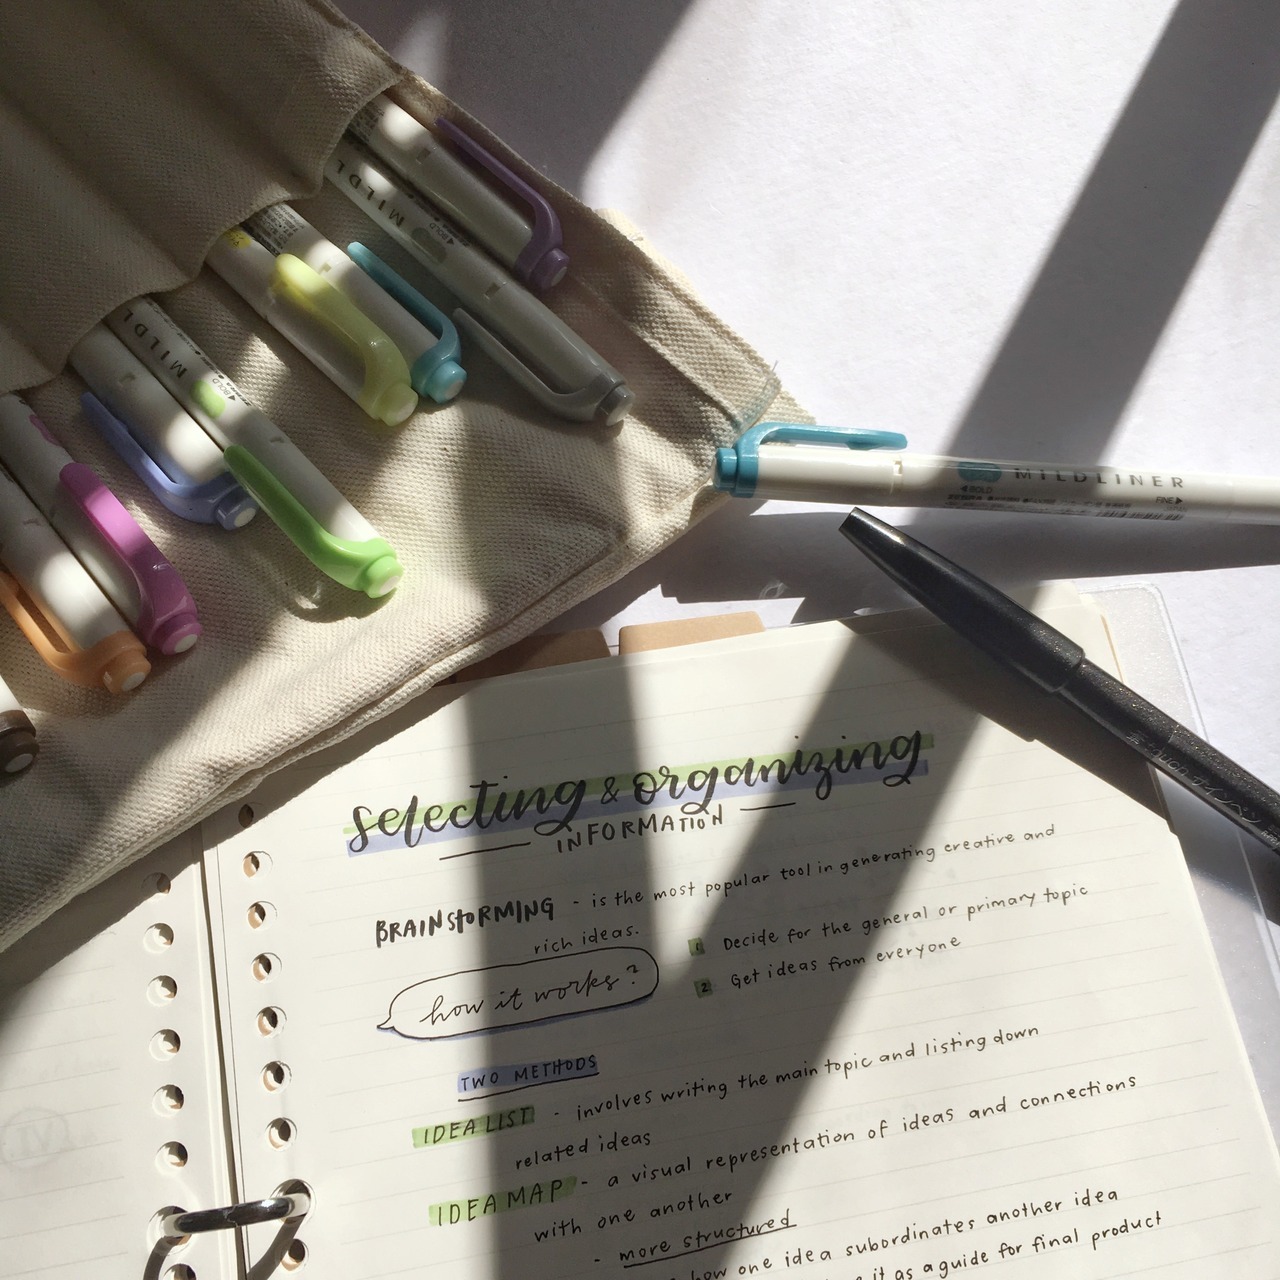 MILDL
MILDL
BOLD
MILDL
BOLD
MILDLINER
BOLD
FINE
selecting & organizing
INFORMATION
BRAINSTORMING - is the most popular tool in generating creative and
rich ideas.
how it works?
1 Decide for the general or primary topic
2 Get ideas from everyone
TWO METHODS
IDEA LIST - involves writing the main topic and listing down
related ideas
IDEA MAP - a visual representation of ideas and connections
with one another
- more structured
how one idea subordinates another idea
it as a guide for final product